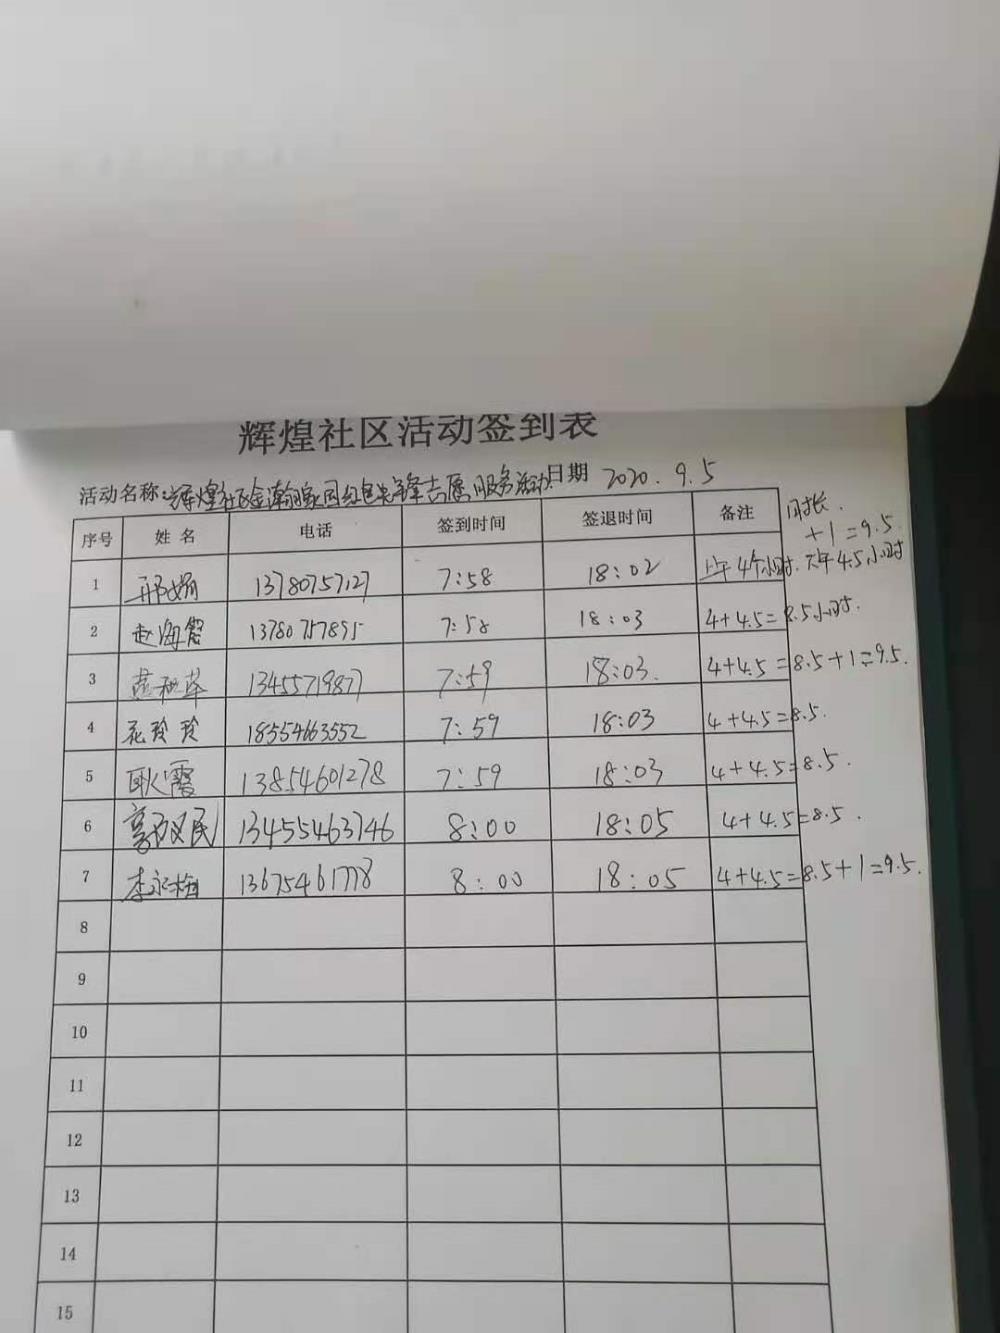 辉煌社区活动签到表
活动名称:辉煌社区金瀚家园红色先锋志愿服务活动 日期 2020.9.5
序号 姓名 电话 签到时间 签退时间 备注 时长.
+1=9.5
1 邢娟 13780757127 7:58 18:02 上午4个小时.下午4.5小时
2 赵海霞 13780757895 7:58 18:03 4+4.5=8.5小时.
3 13455719877 7:59 18:03. 4+4.5=8.5+1=9.5.
4 花玲玲 18554663552 7:59 18:03 4+4.5=8.5.
5 耿霞 13854601278 7:59 18:03 4+4.5=8.5.
6 民 13455463746 8:00 18:05 4+4.5=8.5.
7 李永梅 13675461778 8:00 18:05 4+4.5=8.5+1=9.5.
8
9
10
11
12
13
14
15